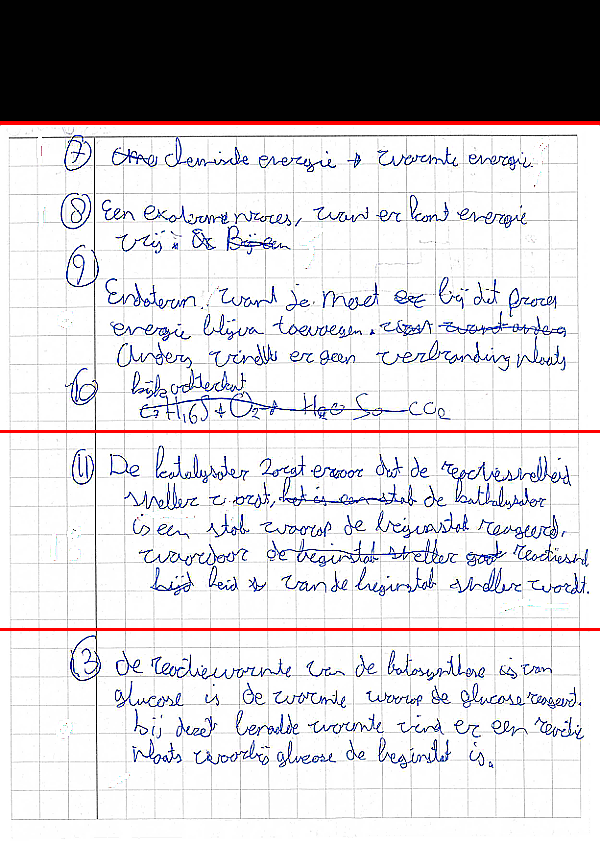 7 chemische energie → warmte energie
8 Een exoterm proces, want er komt energie
vrij.
9
Endoterm, want je moet bij dit proces
energie blijven toevoegen.
Anders vindt er geen verbranding plaats
10 kijk achterkant
C7H16S + O2 → H2O CO2
11 De katalysator zorgt ervoor dat de reactiesnelheid
sneller wordt, het is een stof de kathalysator
is een stof waarop de beginstof reageerd,
waardoor de beginstof sneller gaat reactiesnel
heid van de beginstof sneller wordt.
13 de reactiewarmte van de fotosynthese is van
glucose is de warmte waarop de glucose reageerd.
bij deze bepaalde warmte vind er een reactie
plaats waarbij glucose de beginstof is.